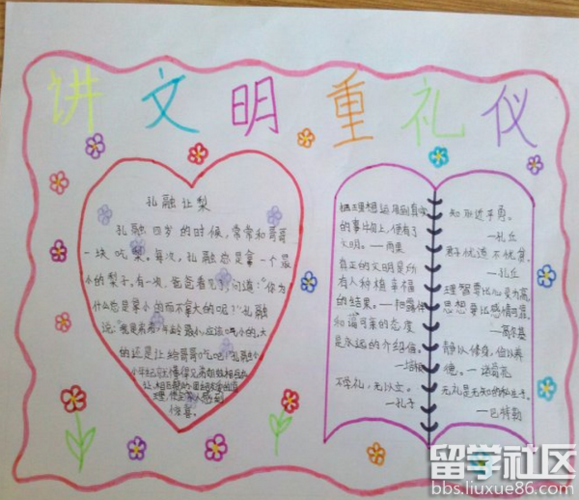 讲文明重礼仪
孔融让梨
孔融四岁的时候,常常和哥哥
一块吃梨。每次,孔融总是拿一个最
小的梨子。有一次,爸爸看见了,问道:"你为
什么总是拿小的而不拿大的呢?"孔融
说:"我是弟弟,年龄最小,应该吃小的,大
的还是让给哥哥吃吧!"孔融小小
惊喜。
把理想运用到真实
的事物上,便有了
文明。—雨果
真正的文明是所
有人种植幸福
的结果。
和谒可亲的态度
是永远的介绍信。
—培根
不学礼,无以立。
—孔子
知耻近乎勇。
—孔丘
君子忧道不忧贫。
—孔丘
理智要比心灵为高,
思想要比感情可靠。
—高尔基
静以修身,俭以养
德。—诸葛亮
无礼是无知的私生子。
—巴特勒
留学社区
bbs.liuxue86.com